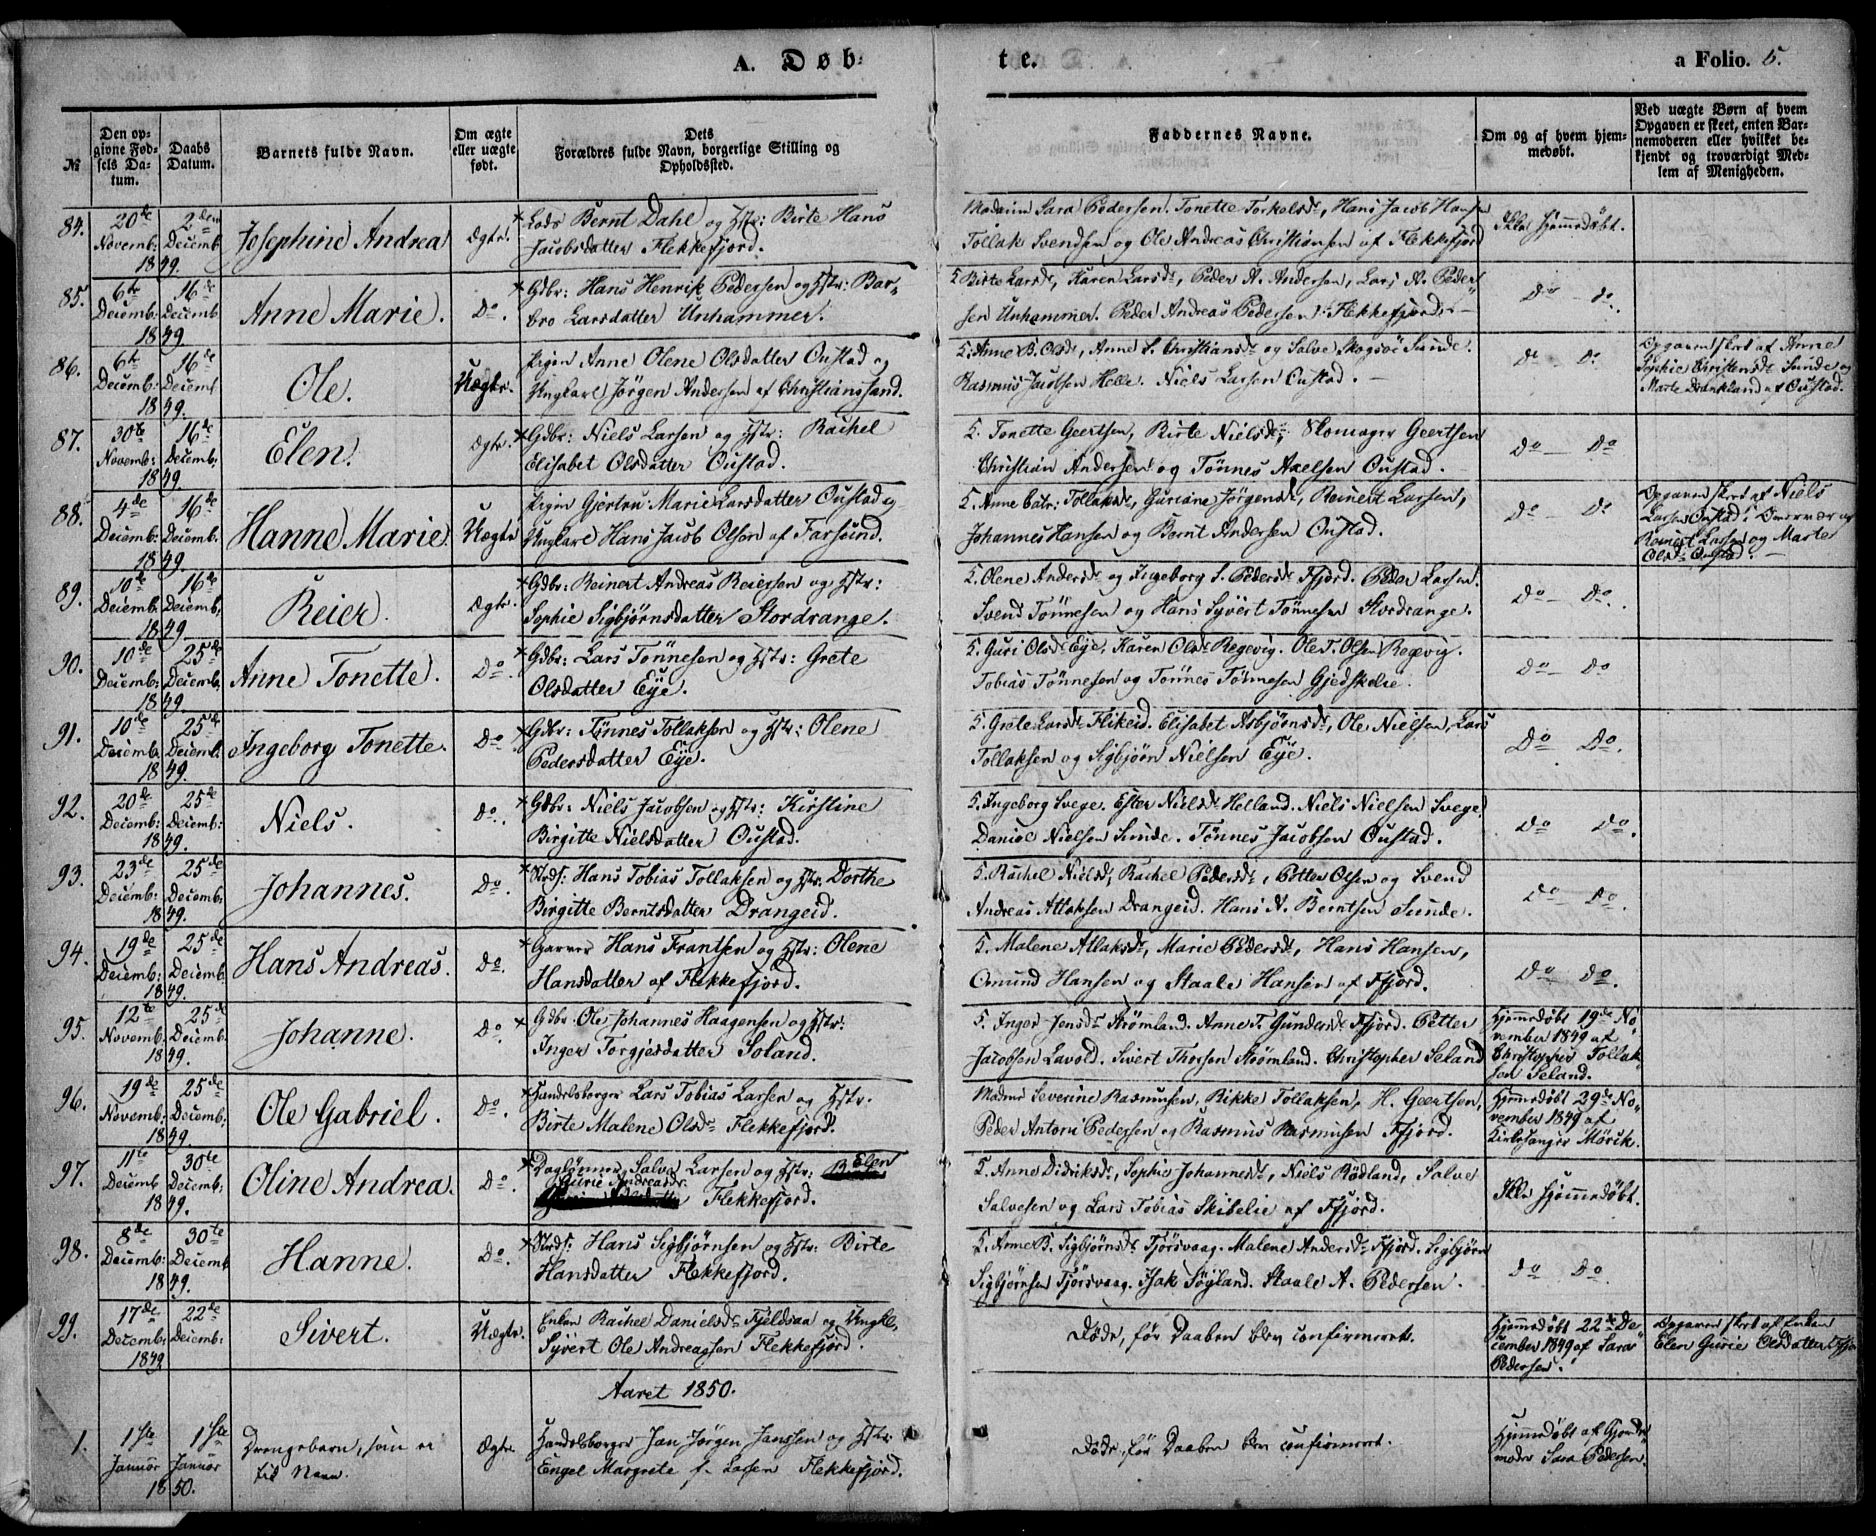 A. Døb-
te.
a Folio. 5.
№
Den op-
givne Fød-
sels Da-
tum.
Daabs
Datum.
Barnets fulde Navn.
Om ægte
eller uægte
født.
Dets
Forældres fulde Navn, borgerlige Stilling og
Opholdssted.
Faddernes Navne.
Om og af hvem hjem-
medøbt.
Ved uægte Børn af hvem
Opgaven er skeet, enten Bar-
nemoderen eller hvilket be-
kjendt og troværdigt Med-
lem af Menigheden.
84. 20de Novemb: 1849. 2den Decemb: Josephine Andrea Ægte.
× Lods Bernt Dahl og Hstr: Birte Hans
Jacobsdatter Flekkefjord.
Madam Sara Pedersen. Tonette Torkelsdr, Hans Jacob Hansen
Tollak Svendsen og Ole Andreas Christiansen af Flekkefjord
Ikke hjemmedøbt.
85. 6te Decemb: 1849. 16de Decemb Anne Marie. Do.
× Gdbr: Hans Henrik Pedersen og Hstr: Bar-
bro Larsdatter Unhammer.
5 Birte Larsdr, Karen Larsdr, Peder A. Andersen, Lars A. Peder-
sen Unhammer. Peder Andreas Pedersen Flekkefjord. –
Do – do.
86. 6te Decemb: 1849. 16de Decemb Ole. Uægte.
Pigen Anne Olene Olsdatter Oustad og
Ungkarl Jørgen Andersen af Christianssand.
5. Anne B. Olsdr, Anne S. Christiansdr og Salve Skogsøe Sunde.
Rasmus Jacobsen Helle. Niels Larsen Oustad. –
do do.
Opgaven skeet af Anne
Sophie Christensdr Sunde og
Marte Drankland af Oustad.
87. 30te Novemb: 1849. 16de Decemb: Elen. Ægte.
× Gdbr: Niels Larsen og Hstr: Rachel
Elisabet Olsdatter Oustad.
5. Tonette Geertsen, Birte Nielsdr, Geertsen
Christian Andersen og Tönnes Axelsen Oustad.
Do – Do
88. 4de Decemb: 1849. 16de Decemb: Hanne Marie. Uægte
Pigen Gjertru Marie Larsdatter Oustad og
Ungkarl Hans Jacob Olsen af Farsund.
5. Anne Catr: Tollaksdr, Guriane Jörgensdr, Reinert Larsen,
Johannes Hansen og Bernt Andersen Oustad.
Do – Do
Opgaven skeet af Niels
Larsen Oustad i Overvær af
Reinert Larsen og Marte
Olsdr Oustad. –
89. 10de Decemb. 1849 16de Decemb: Reier. Ægte.
× Gdbr: Reinert Andreas Reiersen og Hstr:
Sophie Sigbjørnsdatter Stordrange.
5. Olene Andersdr og Ingeborg S. Pedersdr Ffjord. Peder Larsen.
Svend Tönnesen og Hans Syvert Tönnesen Stordrange.
Do – Do.
90. 10de Decemb: 1849. 25de Decemb. Anne Tonette. Do.
× Gdbr: Lars Tönnesen og Hstr: Grete
Olsdatter Eye.
5. Guri Olsdr Eye. Karen Olsdr Regevig. Ole T. Olsen Regevig.
Tobias Tönnesen og Tönnes Tönnesen Gjedskelie.
Do – Do
91. 10de Decemb: 1849. 25de Decemb. Ingeborg Tonette. Do
× Gdbr: Tønnes Tollaksen og Hstr: Olene
Pedersdatter Eye.
5. Grete Larsdr Flikeid. Elisabet Asbjørnsdr, Ole Nielsen, Lars
Tollaksen og Sigbjørn Nielsen Eye.
Do Do.
92. 20de Decemb: 1849. 25de Decemb: Niels. Do.
× Gdbr: Niels Jacobsen og Hstr: Kirstine
Birgitte Nielsdatter Oustad.
5. Ingeborg Svege. Ester Nielsdr Helland. Niels Nielsen Svege.
Daniel Nielsen Sunde. Tönnes Jacobsen Oustad.
Do Do.
93. 23de Decemb: 1849. 25de Decemb: Johannes. Do.
× Hans Tobias Tollaksen og Hstr: Dorthe
Birgitte Berntsdatter Drangeid.
5. Rachel Nielsdr, Rachel Pedersdr, Petter Olsen og Svend
Andreas Atlaksen Drangeid. Hans A. Berntsen Sunde.
Do – Do.
94. 19de Decemb: 1849. 25de Decemb: Hans Andreas. Do.
× Garver Hans Frantsen og Hstr: Olene
Hansdatter af Flekkefjord.
5. Malene Atlaksdr, Marie Pedersdr, Hans Hansen,
Omund Hansen og Staale Hansen af Ffjord.
Do Do.
95. 12te Novemb. 1849. 25de Decemb. Johanne. Do
× Gdbr. Ole Johannes Haagensen og Hstr:
Inger Torgjesdatter Seland.
5. Inger Jensdr Strømland. Anne T. Gundersdr Ffjord. Petter
Jacobsen Lavold. Sivert Thorsen Strömland. Christopher Seland
Hjemmedøbt 19de No-
vember 1849 af
Christopher Tollak-
sen Seland.
96. 19de Novemb: 1849 25de Decemb: Ole Gabriel. Do.
× Handelsborger Lars Tobias Larsen og Hstr.
Birte Malene Olsdr Flekkefjord.
Madme Severine Rasmussen, Rikke Tollaksen, H. Geertsen,
Peder Antoni Pedersen og Rasmus Rasmussen Ffjord.
Hjemmedøbt 29de No-
vember 1849 af
Kirkesanger Mörik.
97. 11te Decemb 1849. 30te Decemb: Oline Andrea. Do.
× Daglönner Salve Larsen og Hstr: Elen
Gurie Andreasdr. Flekkefjord.
5. Anne Didriksdr, Sophie Johannesdr, Niels Rödland, Salve
Salvesen og Lars Tobias Skibelie af Ffjord.
Ikke hjemmedøbt.
98. 8de Decemb: 1849. 30te Decemb Hanne. Do.
× Hans Sigbjørnsen og Hstr: Birte
Hansdatter Flekkefjord.
5. Anne B. Sigbjørnsdr Tjørsvaag. Malene Andersdr Ffjord. Sigbjørn
Sigbjørnsen Tjörsvaag. Isak Søyland. Staale A. Pedersen.
Do Do.
99. 17de Decemb: 1849 22de Decemb: Sivert. Uægte.
Enken Rachel Danielsdr Fjeldsaa og Ungkl.
Syvert Ole Andreassen Flekkefjord.
Døde, før Daaben blev confirmeret.
Hjemmedøbt 22de De-
cember 1849 af Sara
Pedersen.
Opgaven skeet af Enken
Elen Gurie Olsdatter Ffjord
Aaret 1850.
1. 1ste Januar 1850. 1ste Januar Drengebarn, som er Ægte
Handelsborger Jan Jørgen Janssen og Hstr:
Engel Margrete f. Larsen Flekkefjord.
Døde, før Daaben blev confirmeret.
Hjemmedøbt af Gjorde-
moder Sara Pedersen.